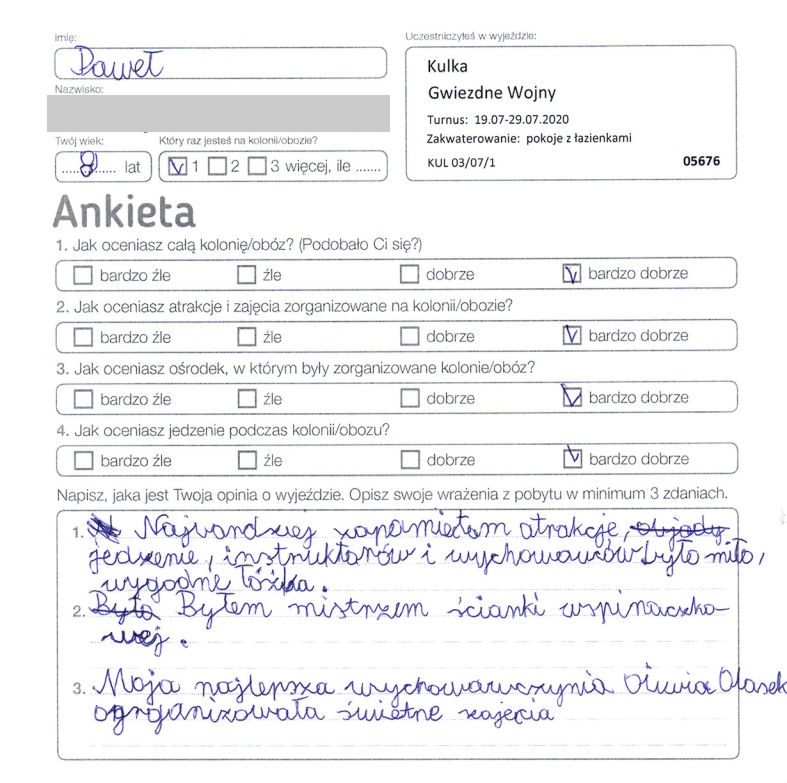 Imię:
Paweł
Nazwisko:
Twój wiek:
8 lat
Który raz jesteś na kolonii/obozie?
1 2 3 więcej, ile .......
Uczestniczyłeś w wyjeździe:
Kulka
Gwiezdne Wojny
Turnus: 19.07-29.07.2020
Zakwaterowanie: pokoje z łazienkami
KUL 03/07/1 05676
Ankieta
1. Jak oceniasz całą kolonię/obóz? (Podobało Ci się?)
bardzo źle źle dobrze bardzo dobrze
2. Jak oceniasz atrakcje i zajęcia zorganizowane na kolonii/obozie?
bardzo źle źle dobrze bardzo dobrze
3. Jak oceniasz ośrodek, w którym były zorganizowane kolonie/obóz?
bardzo źle źle dobrze bardzo dobrze
4. Jak oceniasz jedzenie podczas kolonii/obozu?
bardzo źle źle dobrze bardzo dobrze
Napisz, jaka jest Twoja opinia o wyjeździe. Opisz swoje wrażenia z pobytu w minimum 3 zdaniach.
1. Najbardziej zapamiętam atrakcje, obiady
jedzenie, instruktorów i wychowawców było miło,
wygodne łóżka.
2. Było Byłem mistrzem ścianki wspinaczko-
wej.
3. Moja najlepsza wychowawczynia Oliwia
ogrganizowała świetne zajęcia